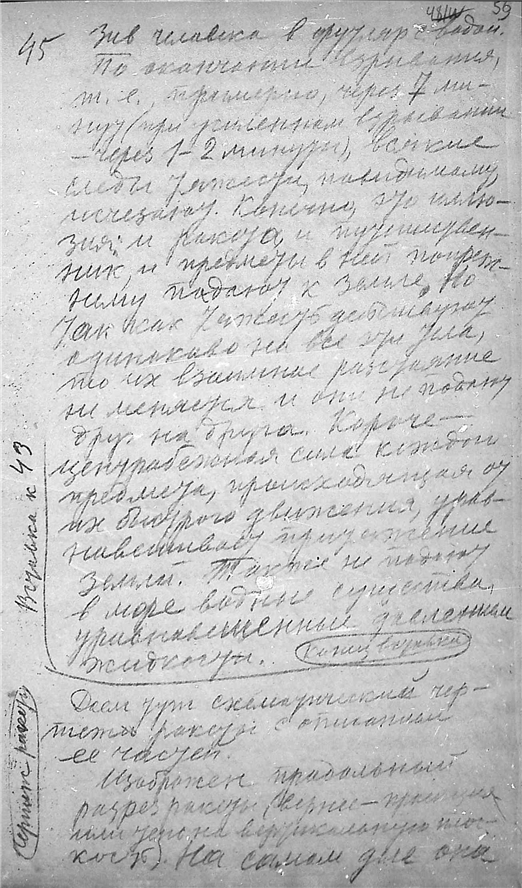 48/IV 59
45
Зив человека в футляр с водой.
По окончании взрывания,
т. е., примерно, через 7 ми-
нут (при усиленном взрывании
– через 1–2 минуты), всякие
следы тяжести, повидимому,
исчезают. Конечно, это иллю-
зия: и ракета, и путешествен-
ник, и предметы в ней попреж-
нему падают к земле. Но
так как тяжесть действует
одинаково на все эти тела,
то их взаимное расстояние
не меняется и они не падают
друг на друга. Короче –
центробежная сила каждого
предмета, происходящая от
их быстрого движения, урав-
навешивает притяжение
земли. Также не падают
в море водные существа,
уравновешенные давлением
жидкости. Конец вставки
Вставка к 43
Даем тут схематический чер-
теж ракеты с описанием
ее частей.
Чертеж ракеты
Изображен продольный
разрез ракеты, вернее –
или
кость). На самом деле она